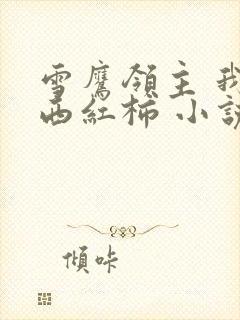 雪鷹領主 我
西紅柿 小說
傾咔